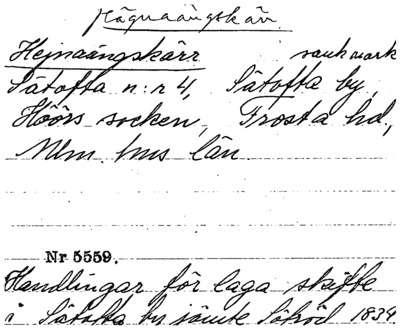 Hägnaängskärr
Hejnaängskärr sankmark
Sätofta n:r 4, Sätofta by,
Höörs socken, Frosta hd,
Mlm. hus län.
Nr 5559.
Handlingar för laga skifte
i Sätofta by jämte 1834